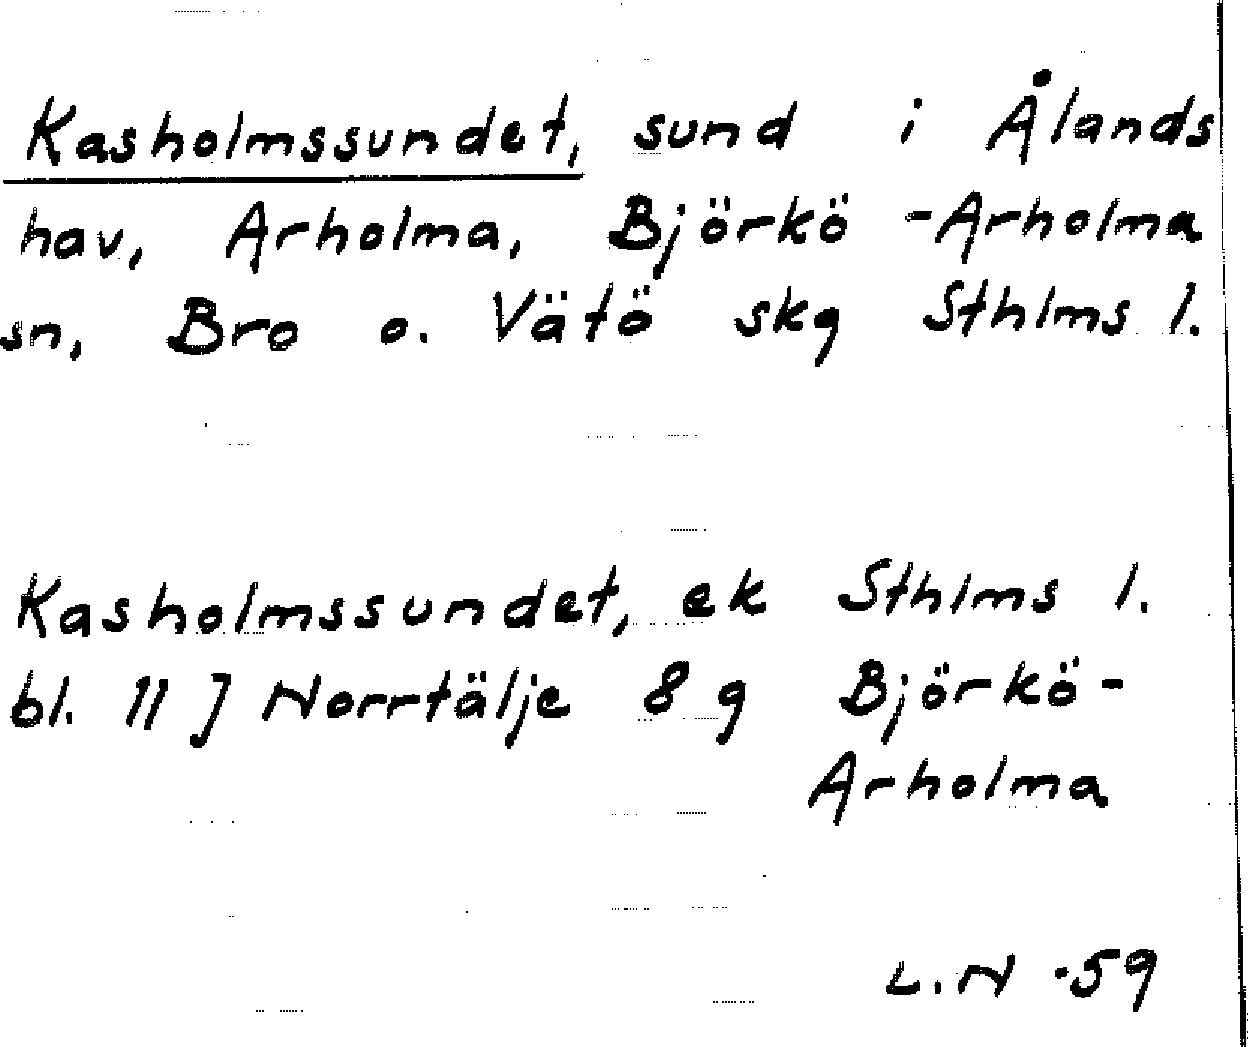 Kasholmssundet, sund i Ålands
hav, Arholma, Björkö -Arholma
sn, Bro o. Vätö skg Sthlms l.
Kasholmssundet, ek Sthlms l.
bl. 11 J Norrtälje 8 g Björkö-
Arholma
L.N -59